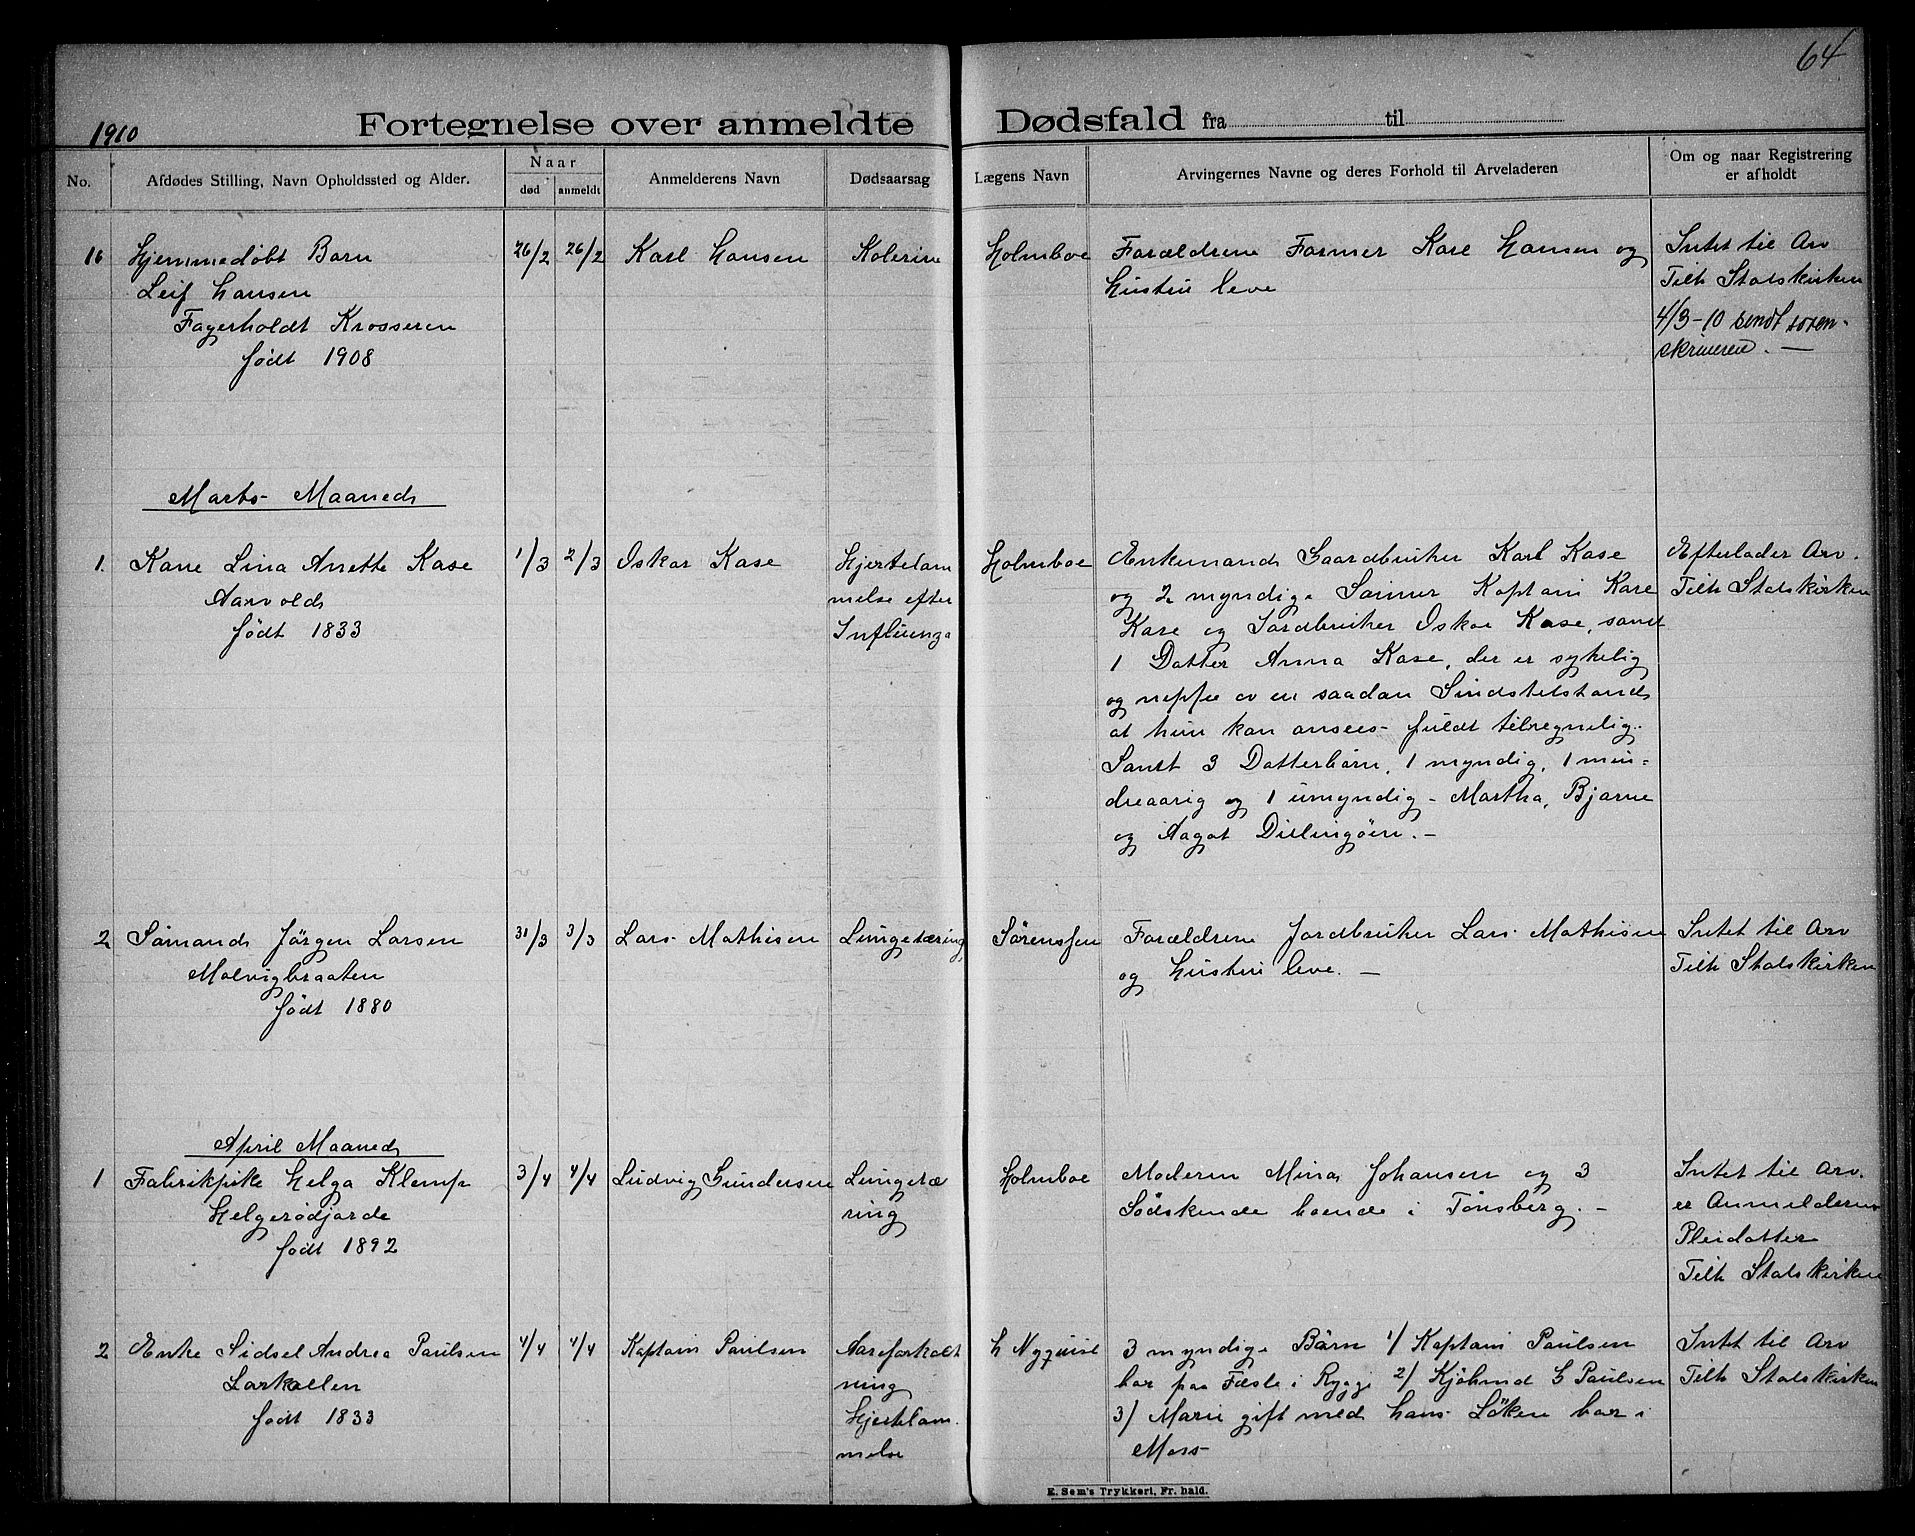 64
1910 Fortegnelse over anmeldte Dødsfald fra til
No. Afdødes Stilling, Navn Opholdssted og Alder. Naar død anmeldt Anmelderens Navn Dødsaarsag Lægens Navn Arvingernes Navne og deres Forhold til Arveladeren Om og naar Registrering er afholdt
16 Hjemmedøbt Barn 26/2 26/2 Karl Hansen Kolerine Holmboe Forældrene Farmer Karl Hansen og Intet til Arv
Leif Hansen Hustru leve Tilh Statskirken
Fagerholdt Krosseren 4/3-10 sendt soren-
født 1908 skriveren. —
Marts Maaned
1. Kone Lina Anette Kase 1/3 2/3 Oskar Kase Hjertelam Holmboe Enkemand Gaardbruker Karl Kase Efterlader Arv.
Aarvold melse efter og 2 myndige Sønner Kaptain Kare Tilh Statskirken
født 1833 Influenza Kase og Jordbruker Oskar Kase, samt
1 Datter Anna Kase, der er sykelig
og neppe av en saadan Sindstilstand
at hun kan ansees fuldt tilregnelig.
Samt 3 Datterbørn, 1 myndig, 1 min-
dreaarig og 1 umyndig - Martha, Bjarne
og Aagot Dillingøen. -
2 Sømand Jørgen Larsen 31/3 3/3 Lars Mathisen Lungetæring Sørensen Forældrene Jordbruker Lars Mathisen Intet til Arv
Molvigbraaten og Hustru leve. — Tilh Statskirken
født 1880
April Maaned
1 Fabrikpike Helga Klemp 3/4 4/4 Ludvig Gundersen Lungetæ Holmboe Moderen Mina Johansen og 3 Intet til Arv.
Helgerødjorde ring Sødskende boende i Tønsberg. - er Anmelderens
født 1892 Pleidatter
Tilh Statskirken
2 Enke Sidsel Andrea Paulsen 4/4 4/4 Kaptain Paulsen Aareforkalk H Nyquist 3 myndige Børn 1/ Kaptain Paulsen Intet til Arv
Larkollen ning bor paa Fæste i Rygge 2/ Kjøbmd G Paulsen Tilh Statskirken
født 1833 Hjertelam 3/ Marie gift med Hans Løken bor i
melse Moss
E. Sem's Trykkeri, Fr. hald.